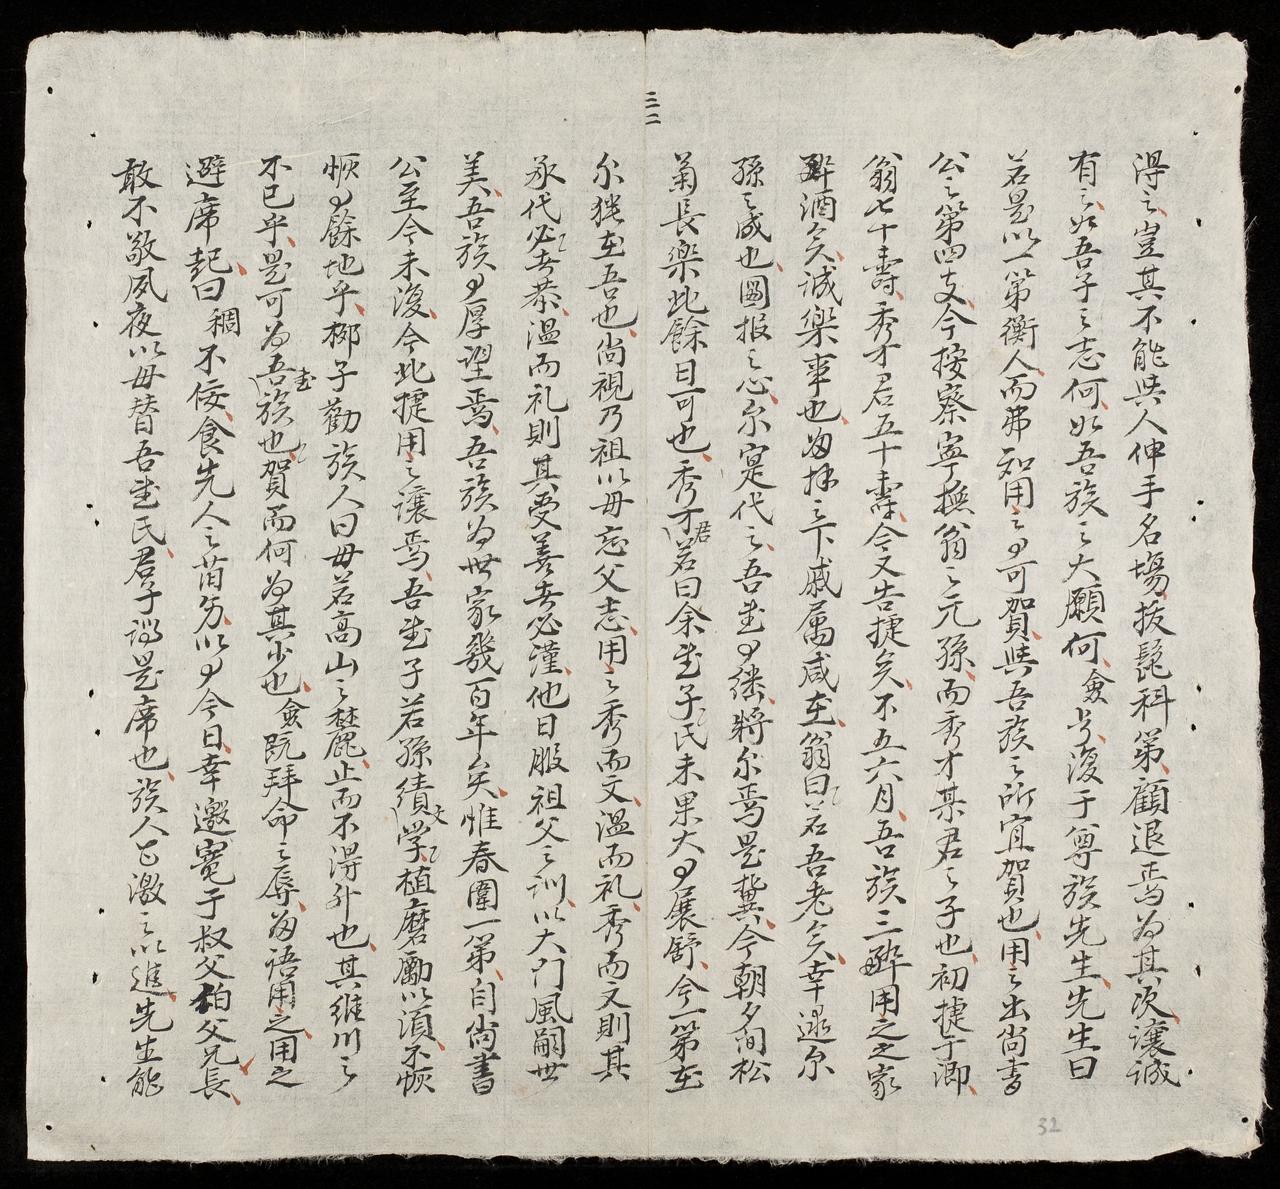 三二
得之豈其不能与人伸手名場抜髭科第顧退焉为其次讓诚
有之如吾子之志何如吾族之大願何僉步復于尊族先生先生曰
若是以一第衡人而弗知用之可賀與吾族之所宜賀也用之出尚書
公之第四支今按察寧撫翁之元孫而秀才某君之子也初捷于鄉
翁七十壽秀才君五十壽今又告捷矣不五六月吾族三醉用之之家
酒矣诚樂事也为拝之下戚属咸在翁曰若吾老矣幸還尔
孫之成也圖报之心尔寔代之吾将尔焉是冀今朝夕间松
菊長樂此餘日可也秀才君曰余子氏未果大展舒今一第在
尔猶在吾也尚視乃祖以毋忘父志用之秀而文温而礼秀而文則其
承代必恭温而礼則其受善必謹他日服祖父之训以大门風嗣世
美吾族厚望焉吾族为世家幾百年矣惟春圍一第自尚書
公至今未復今此捷用之讓焉吾子若孫績文学植磨勵以須不恢
恢餘地乎鄉子勸族人曰毋若高山之麓止而不得升也其維川之
不已乎是可为吾族也賀而何为其少也僉既拜命之辱为语用之用之
避席起曰稠不佞食先人之旧以今日幸邀寵于叔父伯父兄長
敢不敬夙夜以毋替吾氏君子是席也族人激之以進先生能
32